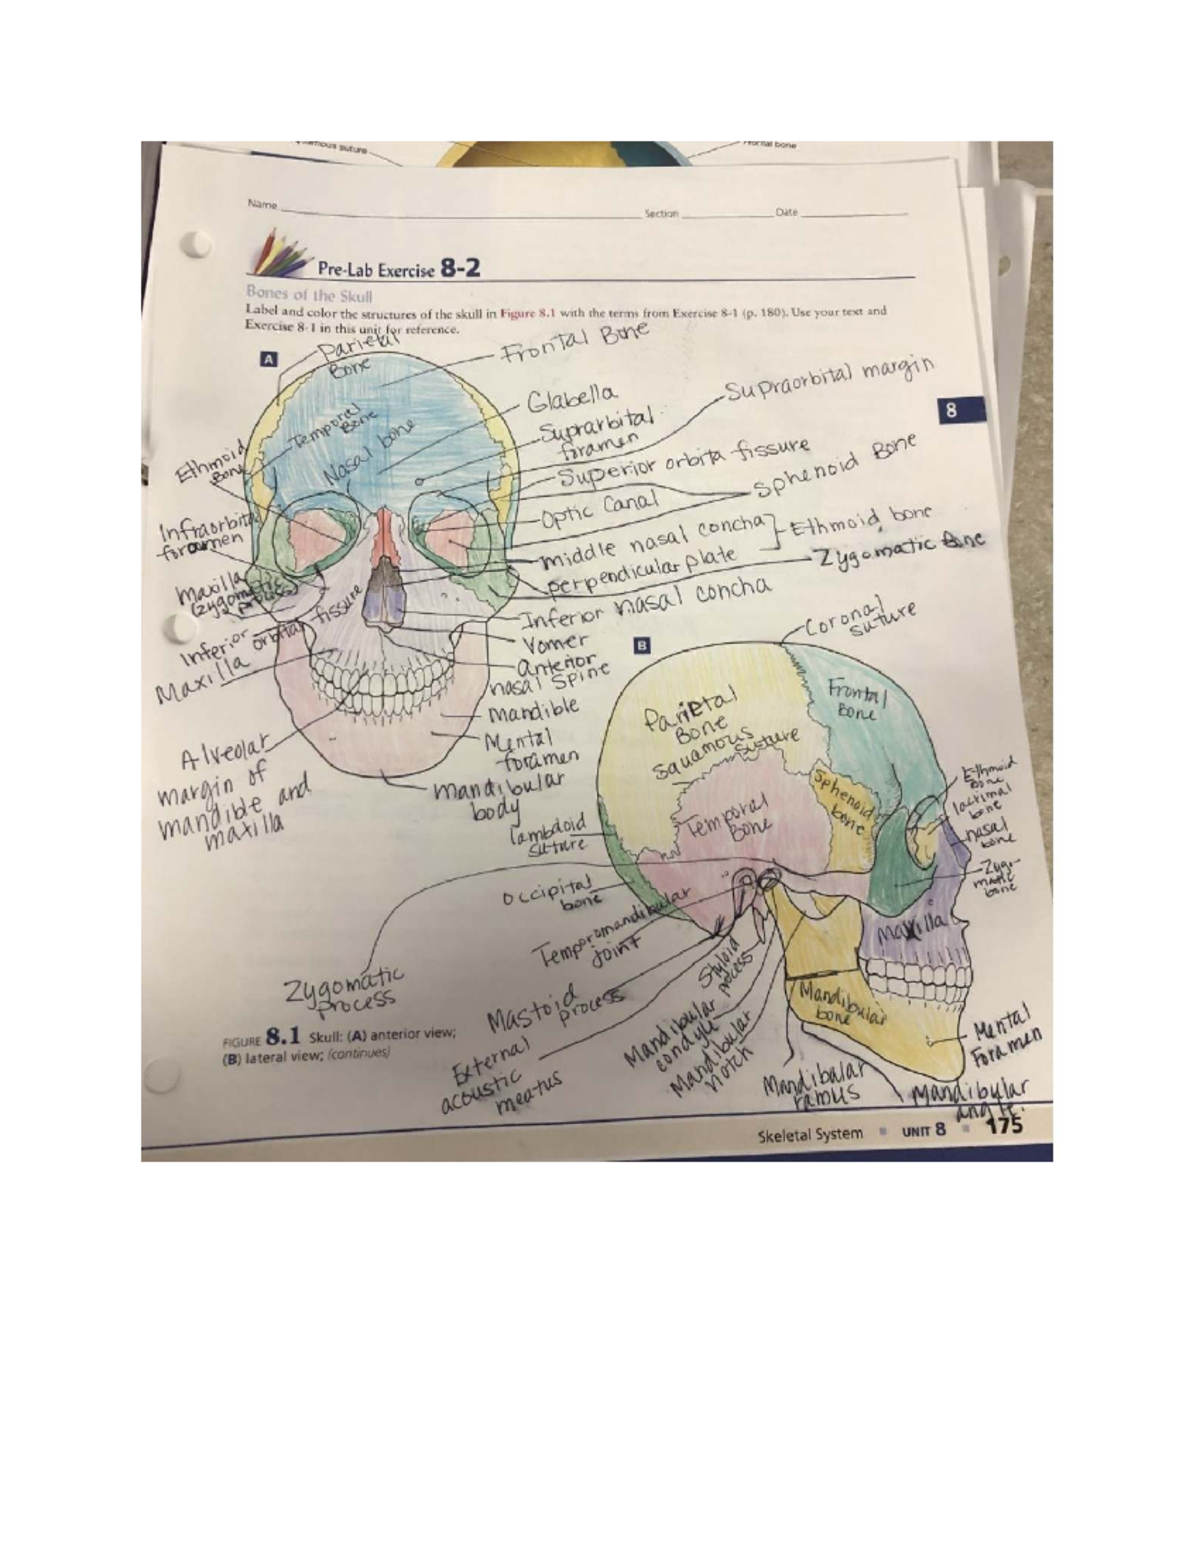 amous suture
Frontal bone
Name
Section
Date
Pre-Lab Exercise 8-2
Bones of the Skull
Label and color the structures of the skull in Figure 8.1 with the terms from Exercise 8-1 (p. 180). Use your text and
Exercise 8-1 in this unit for reference.
A
Parietal
Bone
Frontal Bone
Supraorbital margin
8
Glabella
Suprarbital
foramen
Temporal
Bone
Nasal bone
Ethmoid
Bone
Superior orbita fissure
Sphenoid Bone
Optic Canal
Infraorbital
foramen
middle nasal concha
Ethmoid bone
perpendicular plate
Zygomatic Bone
Maxilla
(zygomatic
process)
Inferior nasal concha
Inferior orbital fissure
Vomer
Maxilla
Anterior
nasal spine
Mandible
Mental
foramen
mandibular
body
Alveolar
margin of
mandible and
maxilla
B
Coronal
suture
Parietal
Bone
Squamous
suture
Frontal
Bone
Sphenoid
bone
Temporal
Bone
Ethmoid
Bone
lacrimal
bone
nasal
bone
Zygo-
matic
bone
lambdoid
suture
Occipital
bone
Temporomandibular
joint
Maxilla
Zygomatic
process
Mastoid
process
Styloid
process
Mandibular
bone
External
acoustic
meatus
Mandibular
condyle
Mandibular
notch
Mandibular
ramus
Mental
Foramen
Mandibular
angle.
FIGURE 8.1 Skull: (A) anterior view;
(B) lateral view; (continues)
Skeletal System ■ UNIT 8 ■ 175